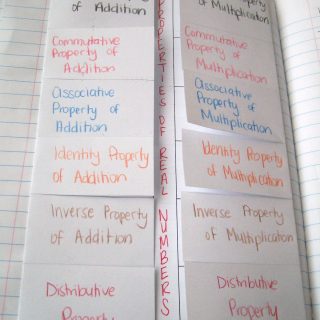 of Addition
Commutative
Property of
Addition
Associative
Property of
Addition
Identity Property
of Addition
Inverse Property
of Addition
Distributive
Property
PROPERTIES OF REAL NUMBERS
of Multiplication
Commutative
Property of
Multiplication
Associative
Property of
Multiplication
Identity Property
of Multiplication
Inverse Property
of Multiplication
Distributive
Property